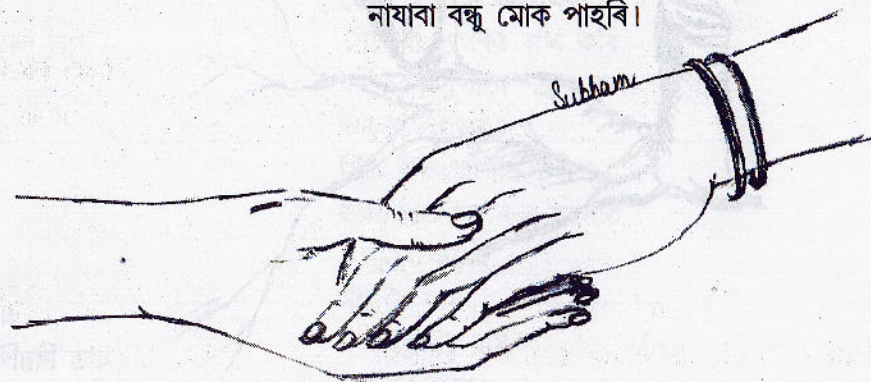 নাযাবা বন্ধু মোক পাহৰি।
Subham